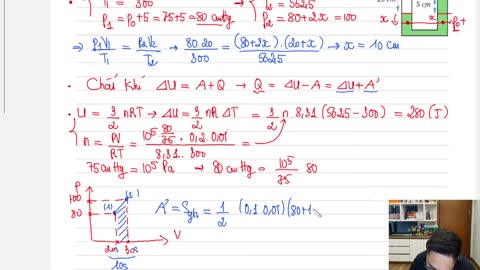 T₁ = 300
P₁ = P₀+5 = 75+5 = 80 cmHg
T₂ = 562,5
P₂ = 80+2x = 100
5 cm
x
P₀+
⇒ P₁V₁/T₁ = P₂V₂/T₂ → 80.20/300 = (80+2x).(20+x)/562,5 → x = 10 cm
• Chất Khí ΔU = A+Q → Q = ΔU-A = ΔU+A'
• U = 3/2 nRT → ΔU = 3/2 nR ΔT = 3/2 n 8,31 (562,5-300) = 280 (J)
n = PV/RT = 10⁵ 80/75 . 0,2.0,01 / 8,31.300
75 cmHg = 10⁵ Pa → 80 cmHg = 10⁵/75 80
P
100
80
(1)
V
20s 30s
10s
A' = Sgh = 1/2 (0,1.0,01)(80+1